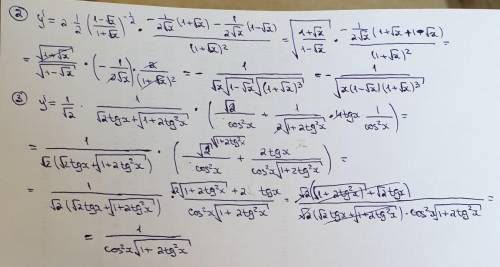 ② y' = 2·1/2 ((1-√x)/(1+√x))^(-1/2) · (-1/(2√x) (1+√x) - 1/(2√x) (1-√x))/(1+√x)² = √((1+√x)/(1-√x)) · (-1/(2√x) (1+√x+1-√x))/(1+√x)² =
= √(1+√x)/√(1-√x) · (-1/(2√x)) · 2/(1+√x)² = - 1/(√x √(1-√x) √(1+√x)³) = - 1/√(x(1-√x)(1+√x)³)
③ y' = 1/√2 · 1/(√2tgx+√(1+2tg²x)) · (√2/cos²x + 1/(2√(1+2tg²x)) · 4tgx 1/cos²x) =
= 1/(√2(√2tgx+√(1+2tg²x))) · (√2^(√(1+2tg²x))/cos²x + 2tgx/(cos²x√(1+2tg²x))) =
= 1/(√2(√2tgx+√(1+2tg²x))) · (√2√(1+2tg²x)+2 tgx)/(cos²x√(1+2tg²x)) = √2(√(1+2tg²x)+√2tgx)/(√2(√2tgx+√(1+2tg²x))·cos²x√(1+2tg²x)) =
= 1/(cos²x√(1+2tg²x))